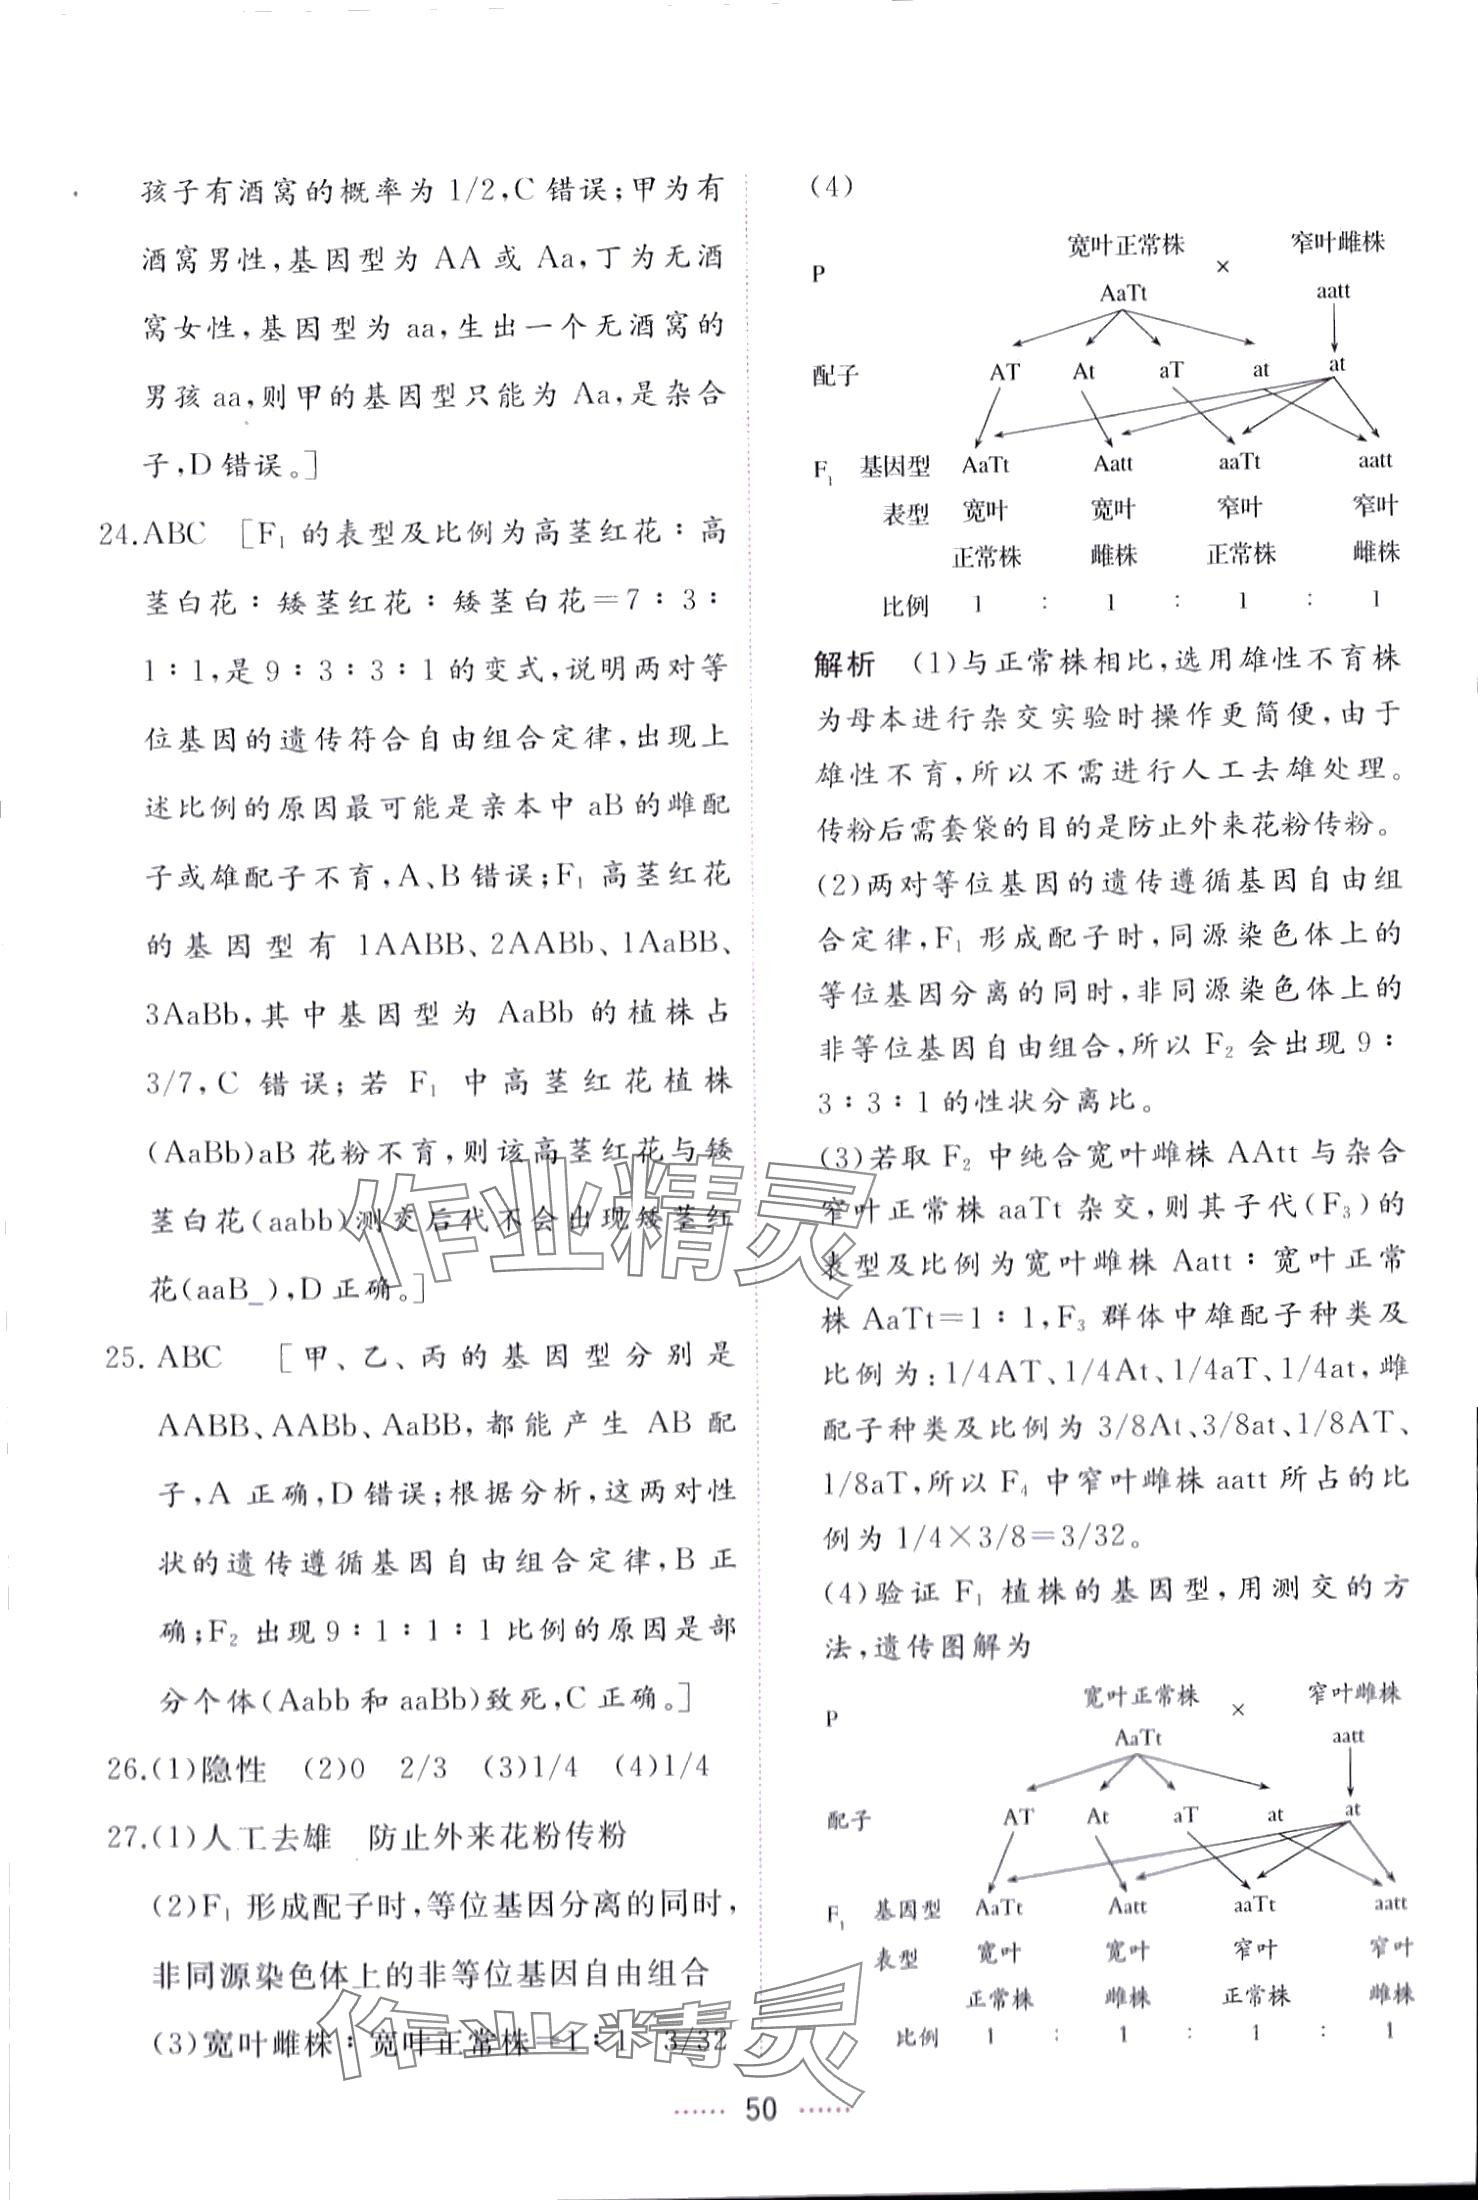 孩子有酒窝的概率为 1/2,C 错误;甲为有
酒窝男性,基因型为 AA 或 Aa,丁为无酒
窝女性,基因型为 aa,生出一个无酒窝的
男孩 aa,则甲的基因型只能为 Aa,是杂合
子,D 错误。]
24.ABC [F₁ 的表型及比例为高茎红花∶高
茎白花∶矮茎红花∶矮茎白花=7∶3∶
1∶1,是 9∶3∶3∶1 的变式,说明两对等
位基因的遗传符合自由组合定律,出现上
述比例的原因最可能是亲本中 aB 的雌配
子或雄配子不育,A、B 错误;F₁ 高茎红花
的基因型有 1AABB、2AABb、1AaBB、
3AaBb,其中基因型为 AaBb 的植株占
3/7,C 错误;若 F₁ 中高茎红花植株
(AaBb)aB 花粉不育,则该高茎红花与矮
茎白花(aabb)测交后代不会出现矮茎红
花(aaB_),D 正确。]
25. ABC [甲、乙、丙的基因型分别是
AABB、AABb、AaBB,都能产生 AB 配
子,A 正确,D 错误;根据分析,这两对性
状的遗传遵循基因自由组合定律,B 正
确;F₂ 出现 9∶1∶1∶1 比例的原因是部
分个体(Aabb 和 aaBb)致死,C 正确。]
26.(1)隐性 (2)0 2/3 (3)1/4 (4)1/4
27.(1)人工去雄 防止外来花粉传粉
(2)F₁ 形成配子时,等位基因分离的同时,
非同源染色体上的非等位基因自由组合
(3)宽叶雌株∶宽叶正常株=1∶1 3/32
(4)
宽叶正常株 × 窄叶雌株
P
AaTt aatt
配子 AT At aT at at
F₁ 基因型 AaTt Aatt aaTt aatt
表型 宽叶 宽叶 窄叶 窄叶
正常株 雌株 正常株 雌株
比例 1 : 1 : 1 : 1
解析 (1)与正常株相比,选用雄性不育株
为母本进行杂交实验时操作更简便,由于
雄性不育,所以不需进行人工去雄处理。
传粉后需套袋的目的是防止外来花粉传粉。
(2)两对等位基因的遗传遵循基因自由组
合定律,F₁ 形成配子时,同源染色体上的
等位基因分离的同时,非同源染色体上的
非等位基因自由组合,所以 F₂ 会出现 9∶
3∶3∶1 的性状分离比。
(3)若取 F₂ 中纯合宽叶雌株 AAtt 与杂合
窄叶正常株 aaTt 杂交,则其子代(F₃)的
表型及比例为宽叶雌株 Aatt∶宽叶正常
株 AaTt=1∶1,F₃ 群体中雄配子种类及
比例为:1/4AT、1/4At、1/4aT、1/4at,雌
配子种类及比例为 3/8At、3/8at、1/8AT、
1/8aT,所以 F₄ 中窄叶雌株 aatt 所占的比
例为 1/4×3/8=3/32。
(4)验证 F₁ 植株的基因型,用测交的方
法,遗传图解为
宽叶正常株 × 窄叶雌株
P
AaTt aatt
配子 AT At aT at at
F₁ 基因型 AaTt Aatt aaTt aatt
表型 宽叶 宽叶 窄叶 窄叶
正常株 雌株 正常株 雌株
比例 1 : 1 : 1 : 1
作业精灵
作业精灵
…… 50 ……